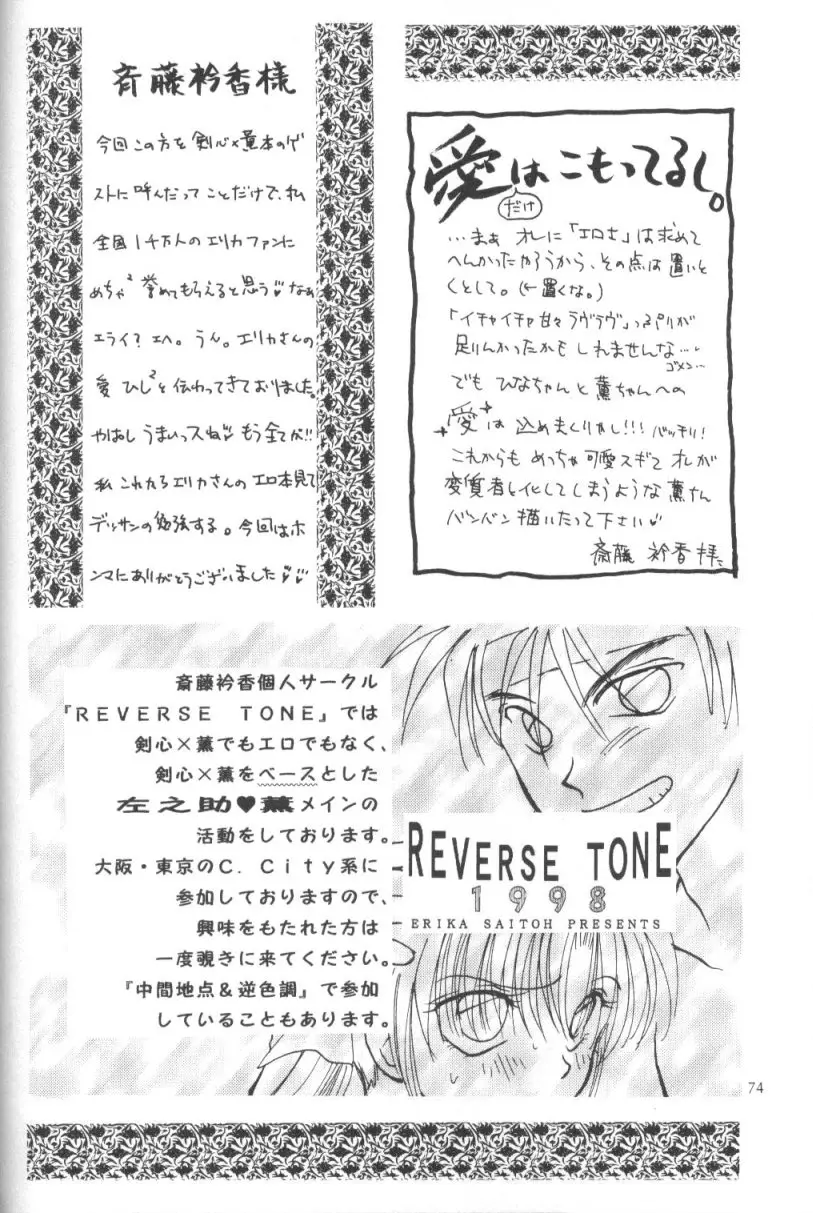 斉藤衿香様
今回この方を剣心×薫本のゲ
ストに呼んだってことだけで、私
全国1千万人のエリカファンに
めちゃ²誉めてもらえると思う♡なぁ
エライ?エヘ。うん。エリカさんの
愛ひし²と伝わってきておりました。
やぱしうまいっスね♡もう全てが!!
私これからエリカさんのエロ本見て
デッサンの勉強する。今回はホ
ンマにありがとうございました♡♡
愛はこもってるし。
だけ
…まぁオレに「エロさ」は求めて
へんかったやろうから、その点は置いと
くとして。(←置くな。)
「イチャイチャ甘々ラヴラヴ」っぷりが
足りんかったかもしれませんな…
ゴメン…
でもひなちゃんと薫ちゃんへの
愛は込めまくりやし!!!バッチリ!
これからもめっちゃ可愛スギて オレが
変質者と化してしまうような薫さん
バンバン描いたって下さい♡
斎藤衿香拝
斎藤衿香個人サークル
『REVERSE TONE』では
剣心×薫でもエロでもなく、
剣心×薫をベースとした
左之助♥薫メインの
活動をしております。
大阪・東京のC.City系に
参加しておりますので、
興味をもたれた方は
一度覗きに来てください。
『中間地点&逆色調』で参加
していることもあります。
REVERSE TONE
1998
ERIKA SAITOH PRESENTS
74